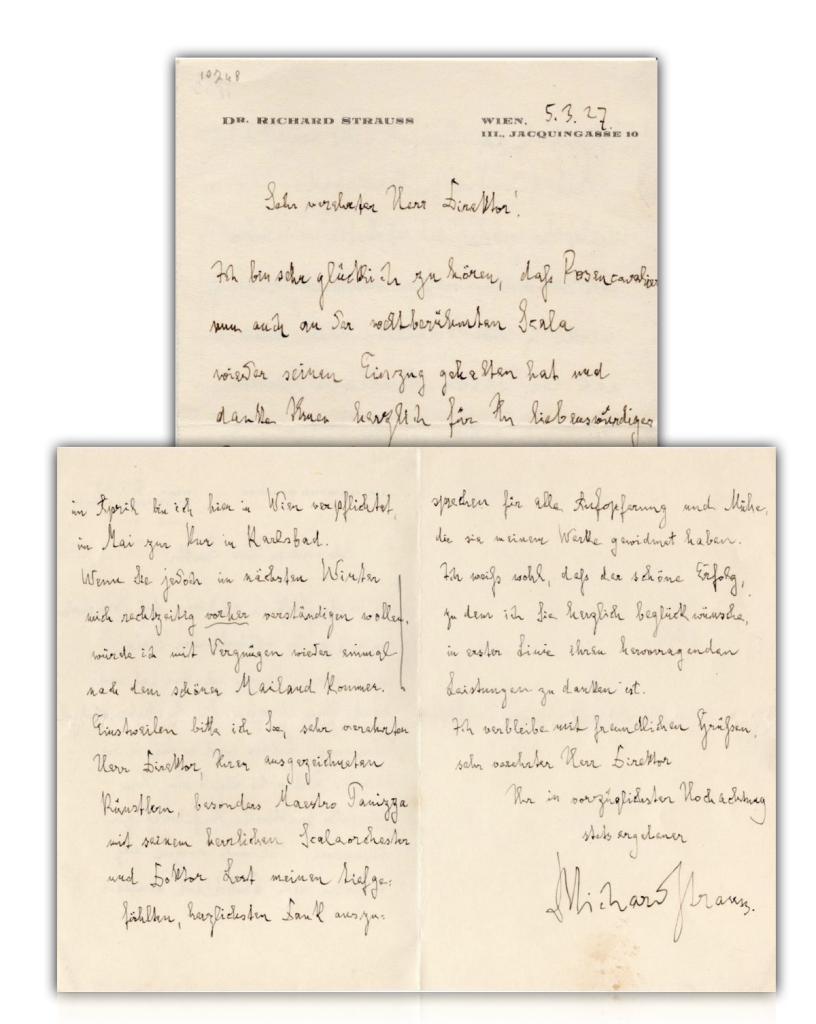 10248
DR. RICHARD STRAUSS
WIEN, 5.3.27.
III., JACQUINGASSE 10
Sehr verehrter Herr Direktor!
Ich bin sehr glücklich zu hören, daß Rosencavalier
nun auch an der weltberühmten Scala
wieder seinen Einzug gehalten hat und
danke Ihnen herzlich für Ihr liebenswürdiges
im April bin ich hier in Wien verpflichtet,
im Mai zur Kur in Karlsbad.
Wenn Sie jedoch im nächsten Winter
mich rechtzeitig vorher verständigen wollen,
würde ich mit Vergnügen wieder einmal
nach dem schönen Mailand kommen.
Einstweilen bitte ich Sie, sehr verehrter
Herr Direktor, Ihren ausgezeichneten
Künstlern, besonders Maestro Panizza
mit seinem herrlichen Scalaorchester
und Doktor Lert meinen tiefge-
fühlten, herzlichsten Dank auszu-
sprechen für alle Aufopferung und Mühe,
die sie meinem Werke gewidmet haben.
Ich weiß wohl, daß der schöne Erfolg,
zu dem ich Sie herzlich beglückwünsche,
in erster Linie ihren hervorragenden
Leistungen zu danken ist.
Ich verbleibe mit freundlichen Grüßen,
sehr verehrter Herr Direktor
Ihr in vorzüglichster Hochachtung
stets ergebener
Dr. Richard Strauss.